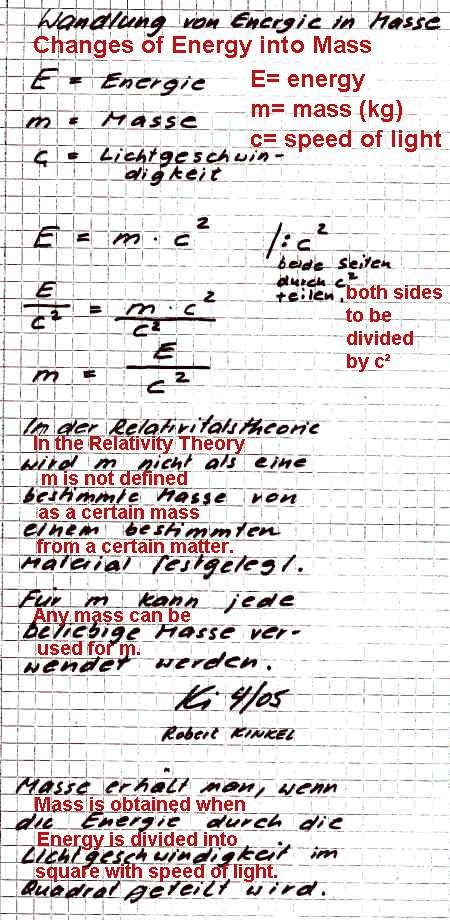 Wandlung von Energie in Masse
Changes of Energy into Mass
E = Energie
E= energy
m = Masse
m= mass (kg)
c = Lichtgeschwin-
digkeit
c= speed of light
E = m · c² /: c²
beide Seiten
durch c²
teilen.
both sides
to be
divided
by c²
E/c² = m · c²/c²
m = E/c²
In der Relativitätstheorie
In the Relativity Theory
wird m nicht als eine
m is not defined
bestimmte Masse von
as a certain mass
einem bestimmten
from a certain matter.
Material festgelegt.
Für m kann jede
Any mass can be
beliebige Masse ver-
used for m.
wendet werden.
Ki 4/05
Robert KINKEL
Masse erhält man, wenn
Mass is obtained when
die Energie durch die
Energy is divided into
Lichtgeschwindigkeit im
square with speed of light.
Quadrat geteilt wird.